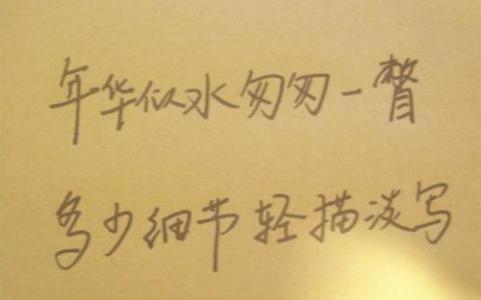 年华似水匆匆一瞥
多少细节轻描淡写